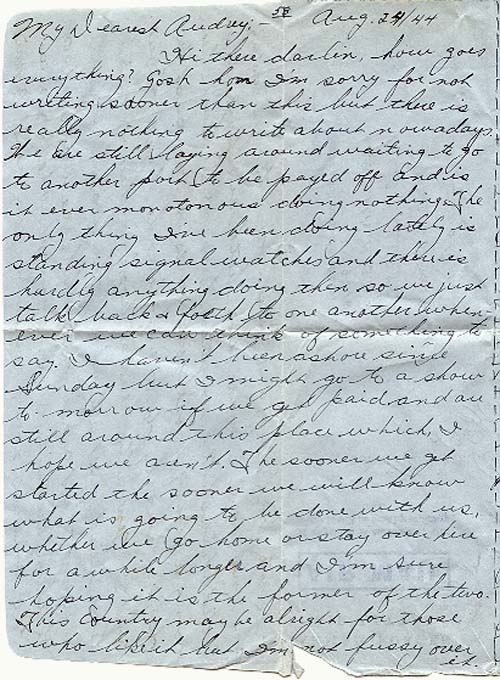 My Dearest Audrey; - 58 Aug. 24/44
Hi there darlin, how goes
everything? Gosh hon I'm sorry for not
writing sooner than this but there is
really nothing to write about nowadays.
We are still laying around waiting to go
to another port to be payed off and is
it ever monotonous doing nothing. The
only thing I've been doing lately is
standing signal watches and there is
hardly anything doing then so we just
talk back & forth to one another when-
ever we can think of something to
say. I haven't been ashore since
Sunday but I might go to a show
to-morrow if we get paid and are
still around this place which, I
hope we aren't. The sooner we get
started the sooner we will know
what is going to be done with us,
whether we go home or stay over here
for a while longer and I'm sure
hoping it is the former of the two.
This Country may be alright for those
who like it but I'm not fussy over
it.